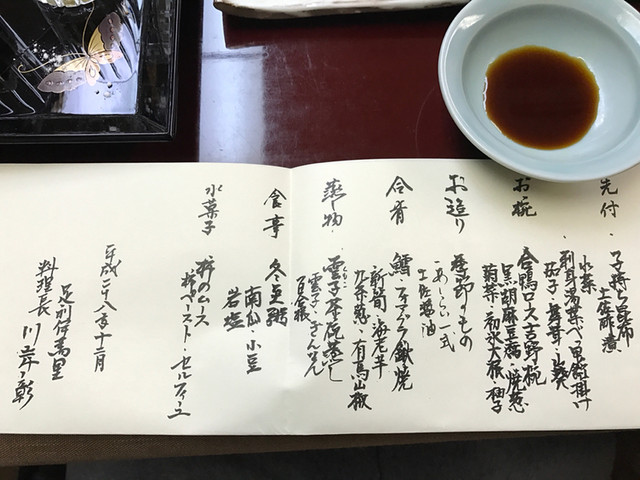 先付
子持ち昆布
土佐酢煮
水菜
刺身湯葉べっ甲餡掛け
お椀
合鴨ロース吉野椀
黒胡麻豆腐・焼葱
菊菜・初氷大根・柚子
お造り
季節のもの
あしらい一式
土佐醤油
合肴
鱈・フォアグラ鍬焼
新筍・海老芋
九条葱・有馬山椒
蒸し物
雲子茶碗蒸し
雲子・ぎんなん
百合根
食事
冬至粥
南瓜・小豆
岩塩
水菓子
柿のムース
柿ペースト・セルフィーユ
平成二十八年十二月
足利伊萬里
料理長 川岸 彰